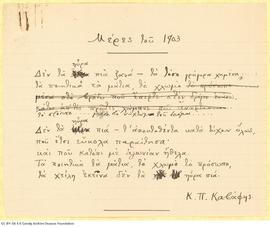 Μέρες του 1903
ηύρα
Δεν τα πια ξανά — τα τόσο γρήγορα χαμένα,
τα ποιητικά τα μάτια, το χλωμό το πρόσωπο
ηύρα
Δεν τα πια — τ' αποκτηθέντα κατά τύχην όλως,
που έτσι εύκολα παραίτησα·
και που κατόπι με αγωνίαν ήθελα.
Τα ποιητικά τα μάτια, το χλωμό το πρόσωπο,
τα χείλη εκείνα δεν τα ηύρα πια.
Κ. Π. Καβάφης
CC BY-SA 4.0 Cavafy Archive Onassis Foundation